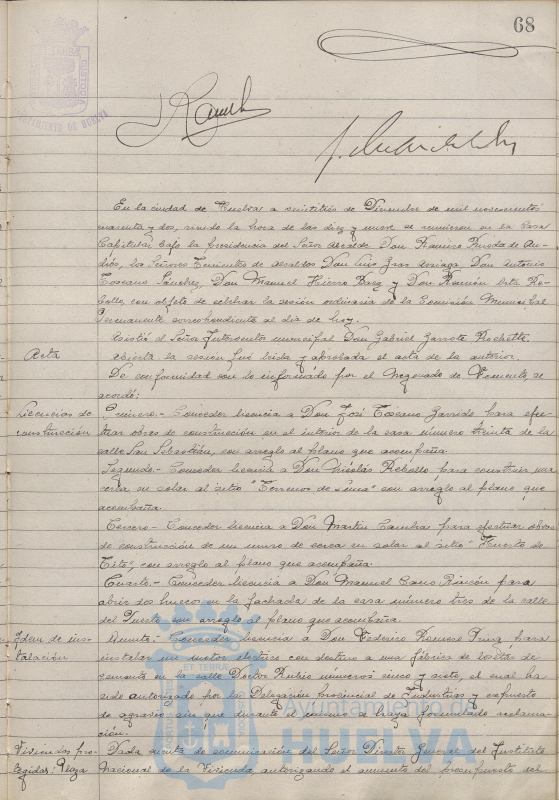 68
AYUNTAMIENTO DE HUELVA
En la ciudad de Huelva a veintitrés de Diciembre de mil novecientos
cuarenta y dos, siendo la hora de las diez y nueve se reunieron en la Casa
Capitular, bajo la Presidencia del Señor Alcalde Don Ramiro
los Señores Tenientes de Alcaldes Don Luis Don Antonio
Toscano Sánchez, Don Manuel Hierro y Don Román
con objeto de celebrar la sesión ordinaria de la Comisión Municipal
Permanente correspondiente al día de hoy.
Asistió el Señor Interventor municipal Don Gabriel Garrote
Acta
Abierta la sesión fué leída y aprobada el acta de la anterior.
De conformidad con lo informado por el Negociado de Fomento, se
acordó:
Licencias de
construcción
Primero.- Conceder licencia a Don José Toscano Garrido para efec-
tuar obras de construcción en el interior de la casa número treinta de la
calle San Sebastián, con arreglo al plano que acompaña.
Segundo.- Conceder licencia a Don Nicolás Rebollo, para construir una
cerca en solar al sitio "Terrenos de con arreglo al plano que
acompaña.
Tercero.- Conceder licencia a Don Martín para efectuar obras
de construcción de un muro de cerca en solar al sitio "Huerto de
con arreglo al plano que acompaña.
Cuarto.- Conceder licencia a Don Manuel Cano Rincón para
abrir dos huecos en la fachada de la casa número tres de la calle
del Puerto con arreglo al plano que acompaña.
Idem de ins-
talación
Quinto.- Conceder licencia a Don Federico Romero para
instalar un motor eléctrico con destino a una fábrica de losetas de
cemento en la calle Doctor Rubio números cinco y siete, el cual ha
sido autorizado por la Delegación Provincial de Industrias y expuesto
de agravio sin que durante el mismo se haya formulado reclama-
ción.
Viviendas pro-
tegidas: Plaza
Dada cuenta de comunicación del Señor Director General del Instituto
Nacional de la Vivienda autorizando el aumento del presupuesto del
Ayuntamiento de
HUELVA